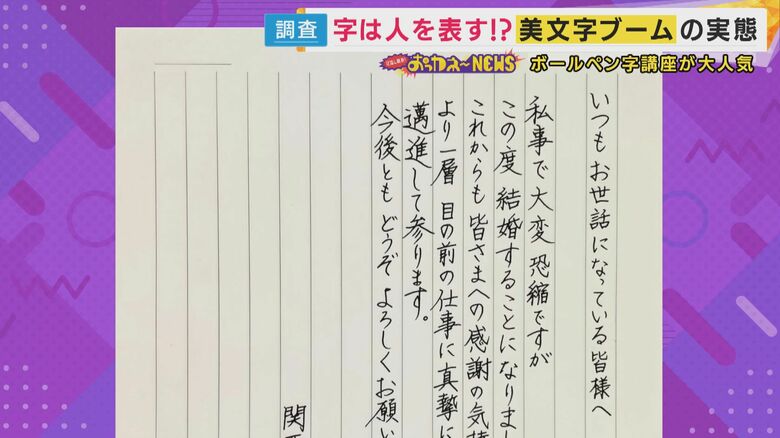 調査 字は人を表す!? 美文字ブームの実態
おっかえ〜NEWS
ボールペン字講座が大人気
いつもお世話になっている皆様へ
私事で大変恐縮ですが
この度 結婚することになりまし
これからも皆さまへの感謝の気持
より一層 目の前の仕事に真摯に
邁進して参ります。
今後とも どうぞ よろしくお願い
関西